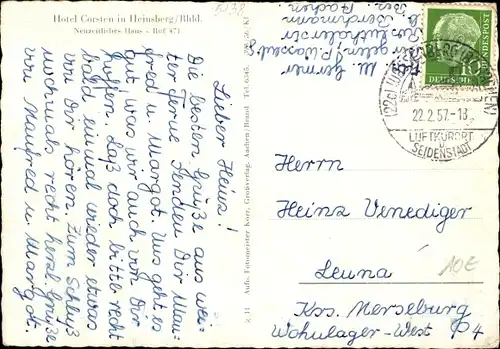 Hotel Corsten in Heinsberg/Rhld.
Neuzeitliches Haus - Ruf 471
Lieber Heinz!
Die besten Grüße aus wei-
ter ferne senden Dir Man-
fred u. Margot. Uns geht es
gut was wir auch von Dir
hoffen. Laß doch bitte recht
bald einmal wieder etwas
von Dir hören. Zum Schluß
nochmals recht herzl. Grüße
von Manfred u. Margot.
Aufn. Fotomeister Korr, Großverlag, Aachen/Brand Tel.
DEUTSCHE BUNDESPOST
10
(22c)
22.2.57.-18
LUFTKURORT
U.
SEIDENSTADT
Herrn
Heinz Venediger
Leuna
Krs. Merseburg
Wohnlager-West P4
10E